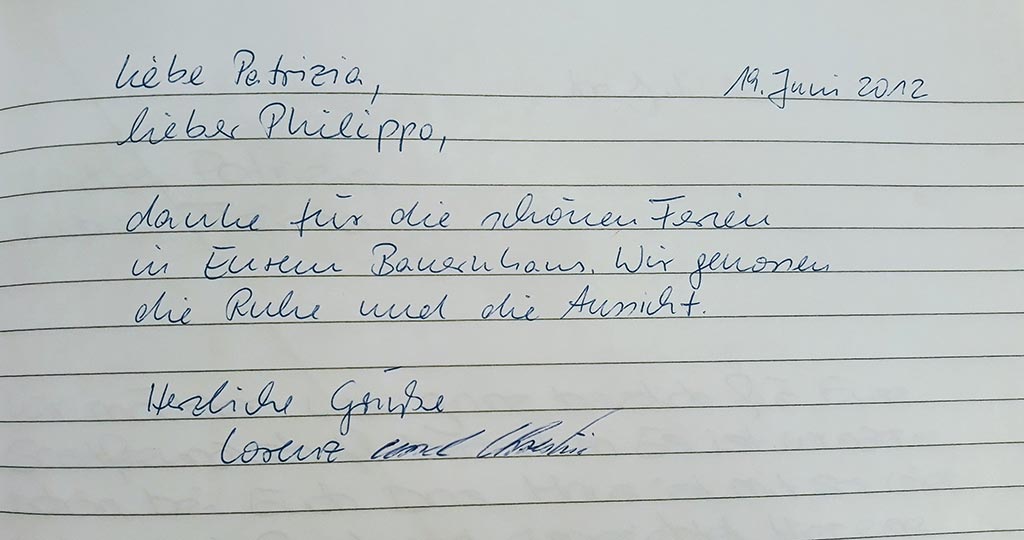 liebe Patrizia,
19. Juni 2012
lieber Philippo,
danke für die schönen Ferien
in Eurem Bauernhaus. Wir genossen
die Ruhe und die Aussicht.
Herzliche Grüße
Lorenz und